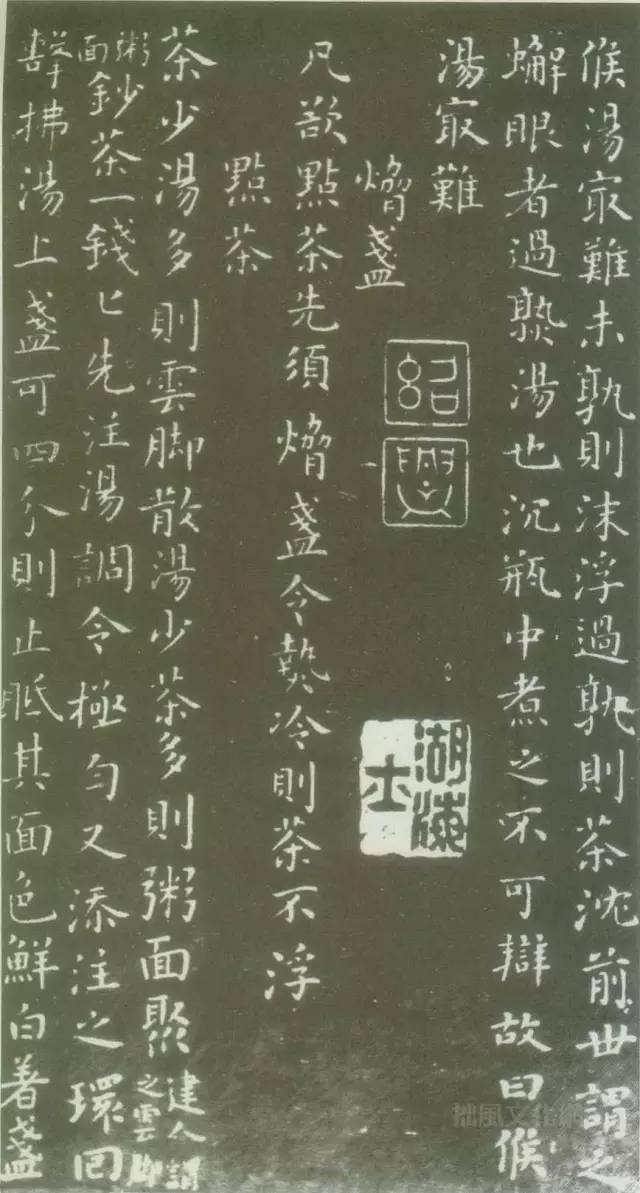 候湯㝡難未孰則沫浮過孰則茶沈前世謂之
蠏眼者過熟湯也沉瓶中煮之不可辯故曰候
湯㝡難
熁盞
凡欲點茶先須熁盞令熱冷則茶不浮
點茶
茶少湯多則雲脚散湯少茶多則粥面聚建人謂之雲脚
粥面鈔茶一錢匕先注湯調令極匀又添注之環回
擊拂湯上盞可四分則止眂其面色鮮白著盞
紹興
湖海
士
拙風文化網